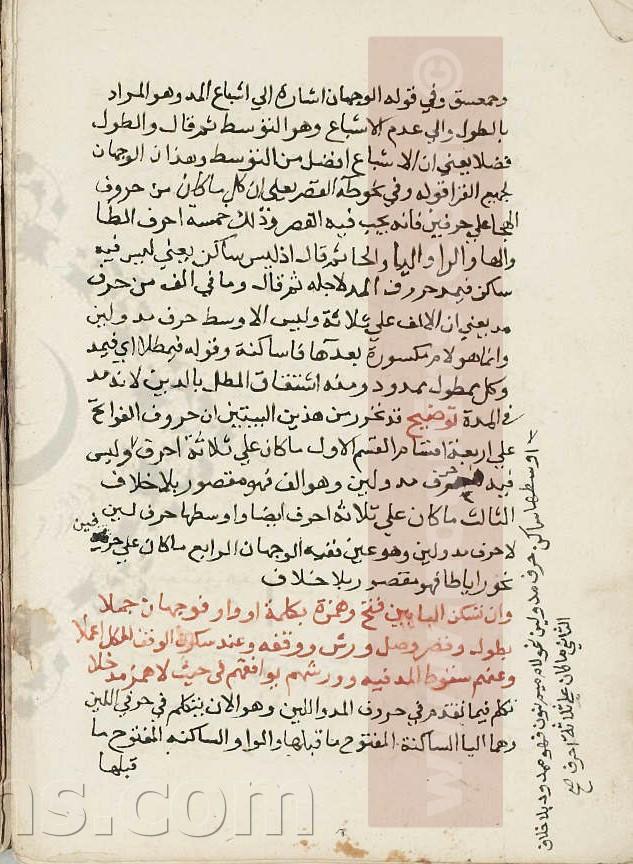 وحمعسق وفي قوله الوجهان اشارة الي اشباع المد وهو المراد
بالطول والي عدم الاشباع وهو التوسط ثم قال والطول
فضلا يعني ان الاشباع افضل من التوسط وهذان الوجهان
لجميع القرا قوله وفي نحو طه القصر يعني ان كل ما كان من حروف
الهجا علي حرفين فانه يجب فيه القصر وذلك خمسة احرف الطا
والها والرا واليا والحا ثم قال اذ ليس ساكن يعني ليس فيه
ساكن فيمد حرف المد لاجله ثم قال وما في الف من حرف
مد يعني ان الالف علي ثلاثة وليس الاوسط حرف مد ولين
وانما هو لام مكسورة بعدها فا ساكنة وقوله فيمطلا اي فيمد
وكل ممطول ممدود ومنه اشتقاق المطل بالدين لانه مد
في المدة توضيح قد تحرر من هذين البيتين ان حروف الفواتح
علي اربعة اقسام القسم الاول ما كان علي ثلاثة احرف وليس
فيه حرف مد ولين وهو الف فهو مقصور بلا خلاف
الثالث ما كان علي ثلاثة احرف ايضا واوسطها حرف لين
لا حرف مد ولين وهو عين ففيه الوجهان الرابع ما كان علي حرفين
نحو را يا طا فهو مقصور بلا خلاف
وان تسكن اليا بين فتح وهمزة بكلمة او واو فوجهان جملا
بطول وقصر وصل ورش ووقفه وعند سكون الوقف للكل اعملا
وعنهم سقوط المد فيه وورشهم يوافقهم في حيث لا همز مدخلا
تكلم فيما تقدم في حروف المد واللين وهو الان يتكلم في حرفي اللين
وهما اليا الساكنة المفتوح ما قبلها والواو الساكنه المفتوح ما
قبلها
الثاني ما كان علي ثلاثة احرف
اوسطها ساكن حرف مد ولين نحو لام ميم نون فهو ممدود بلا خلاف
صح